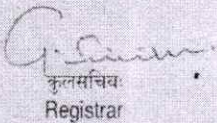 कुलसचिवः
Registrar